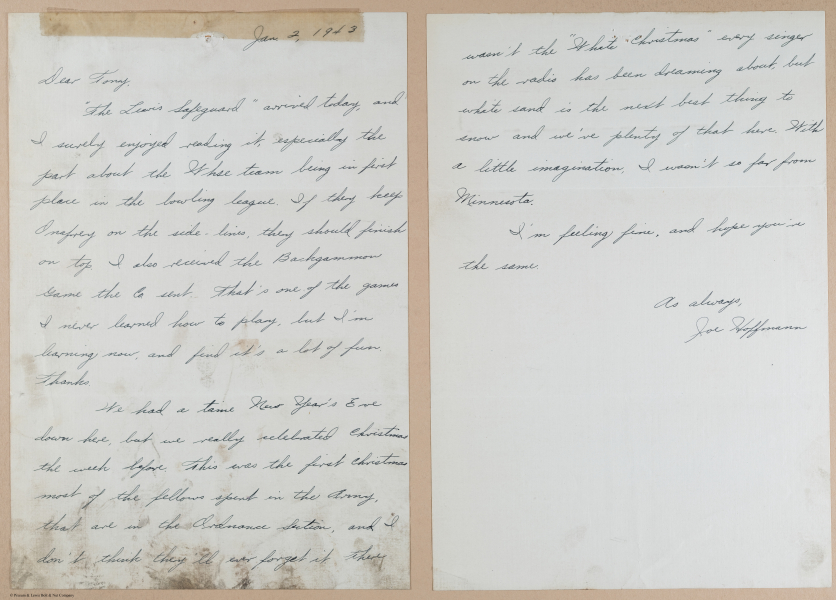 Jan 2, 1943
Dear Tony,
"The Lewis Safeguard" arrived today, and
I surely enjoyed reading it, especially the
part about the Whse team being in first
place in the bowling league. If they keep
Onofrey on the side-lines, they should finish
on top. I also received the Backgammon
Game the Co sent. That's one of the games
I never learned how to play, but I'm
learning now, and find it's a lot of fun.
Thanks
We had a tame New Year's Eve
down here, but we really celebrated Christmas
the week before. This was the first Christmas
most of the fellows spent in the Army,
that are in the Ordnance Section, and I
don't think they'll ever forget it. They
wasn't the "White Christmas" every singer
on the radio has been dreaming about, but
white sand is the next best thing to
snow and we've plenty of that here. With
a little imagination, I wasn't so far from
Minnesota.
I'm feeling fine, and hope you're
the same.
As always,
Joe Hoffmann